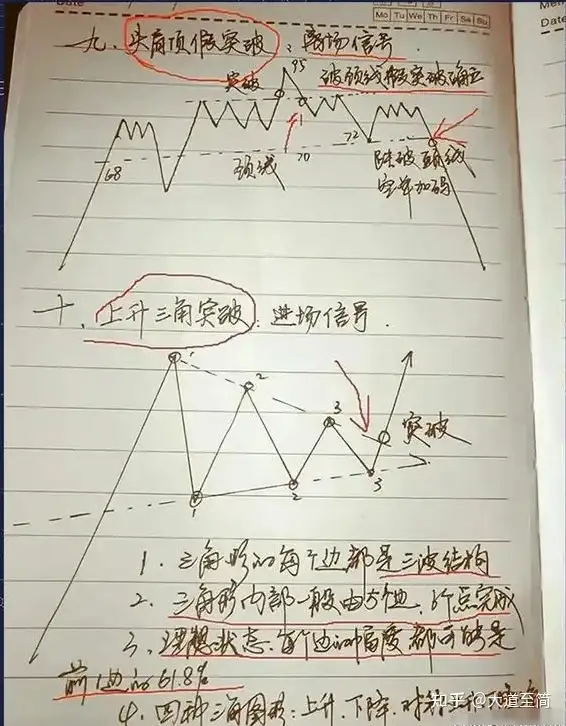 Date
Mo Tu We Th Fr Sa Su
Me
Date
九、头肩顶假突破、离场信号
突破
95
破颈线假突破确立
68
颈线
70
72
跌破颈线
空单加码
十、上升三角突破：进场信号.
1
2
3
突破
1
2
3
1. 三角形的每个边都是三波结构
2. 三角形内部一般由5个边、6个点完成
3、理想状态、每个边的幅度都可能是
前1边的61.8%
4. 四种三角图形：上升、下降、对称
知乎 @大道至简